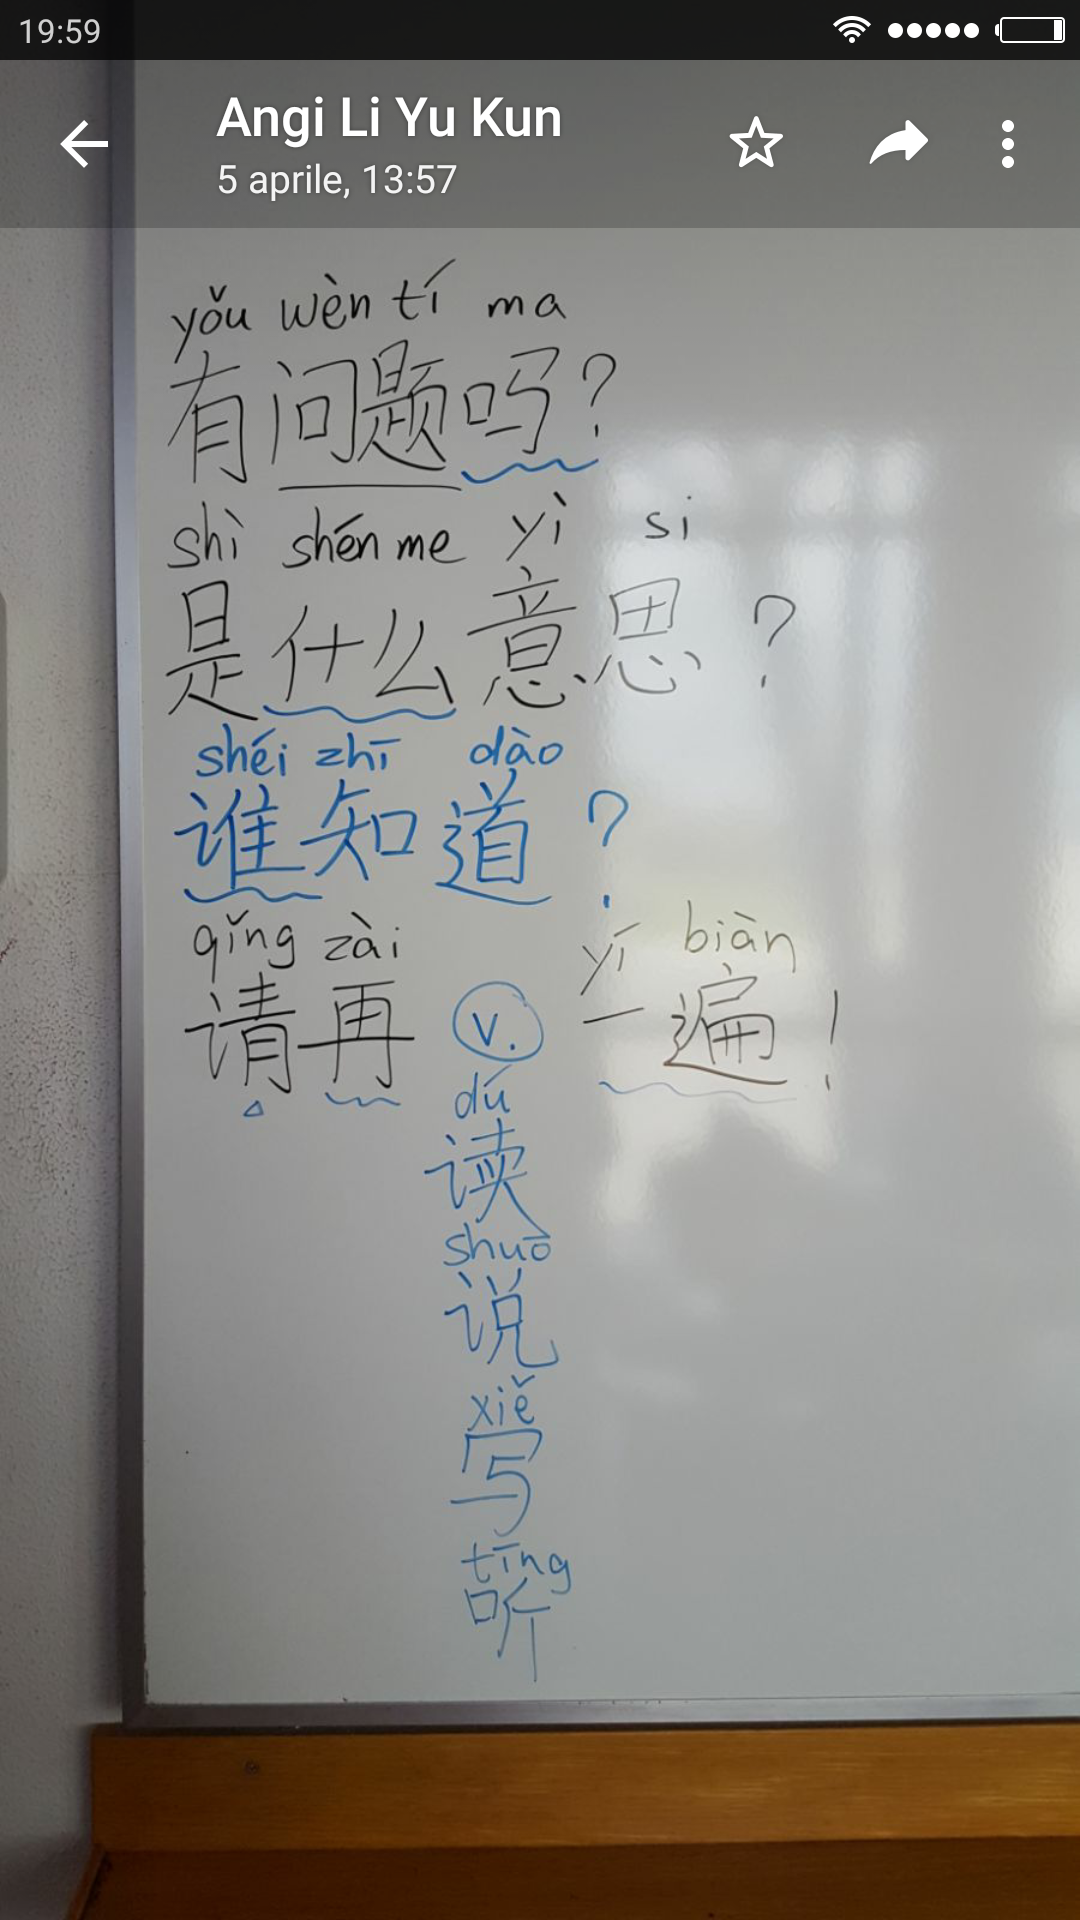 19:59
Angi Li Yu Kun
5 aprile, 13:57
yǒu wèn tí ma
有问题吗?
shì shén me yì si
是什么意思?
shéi zhī dào
谁知道?
qǐng zài yí biàn
请再 v. 一遍!
dú
读
shuō
说
xiě
写
tīng
听